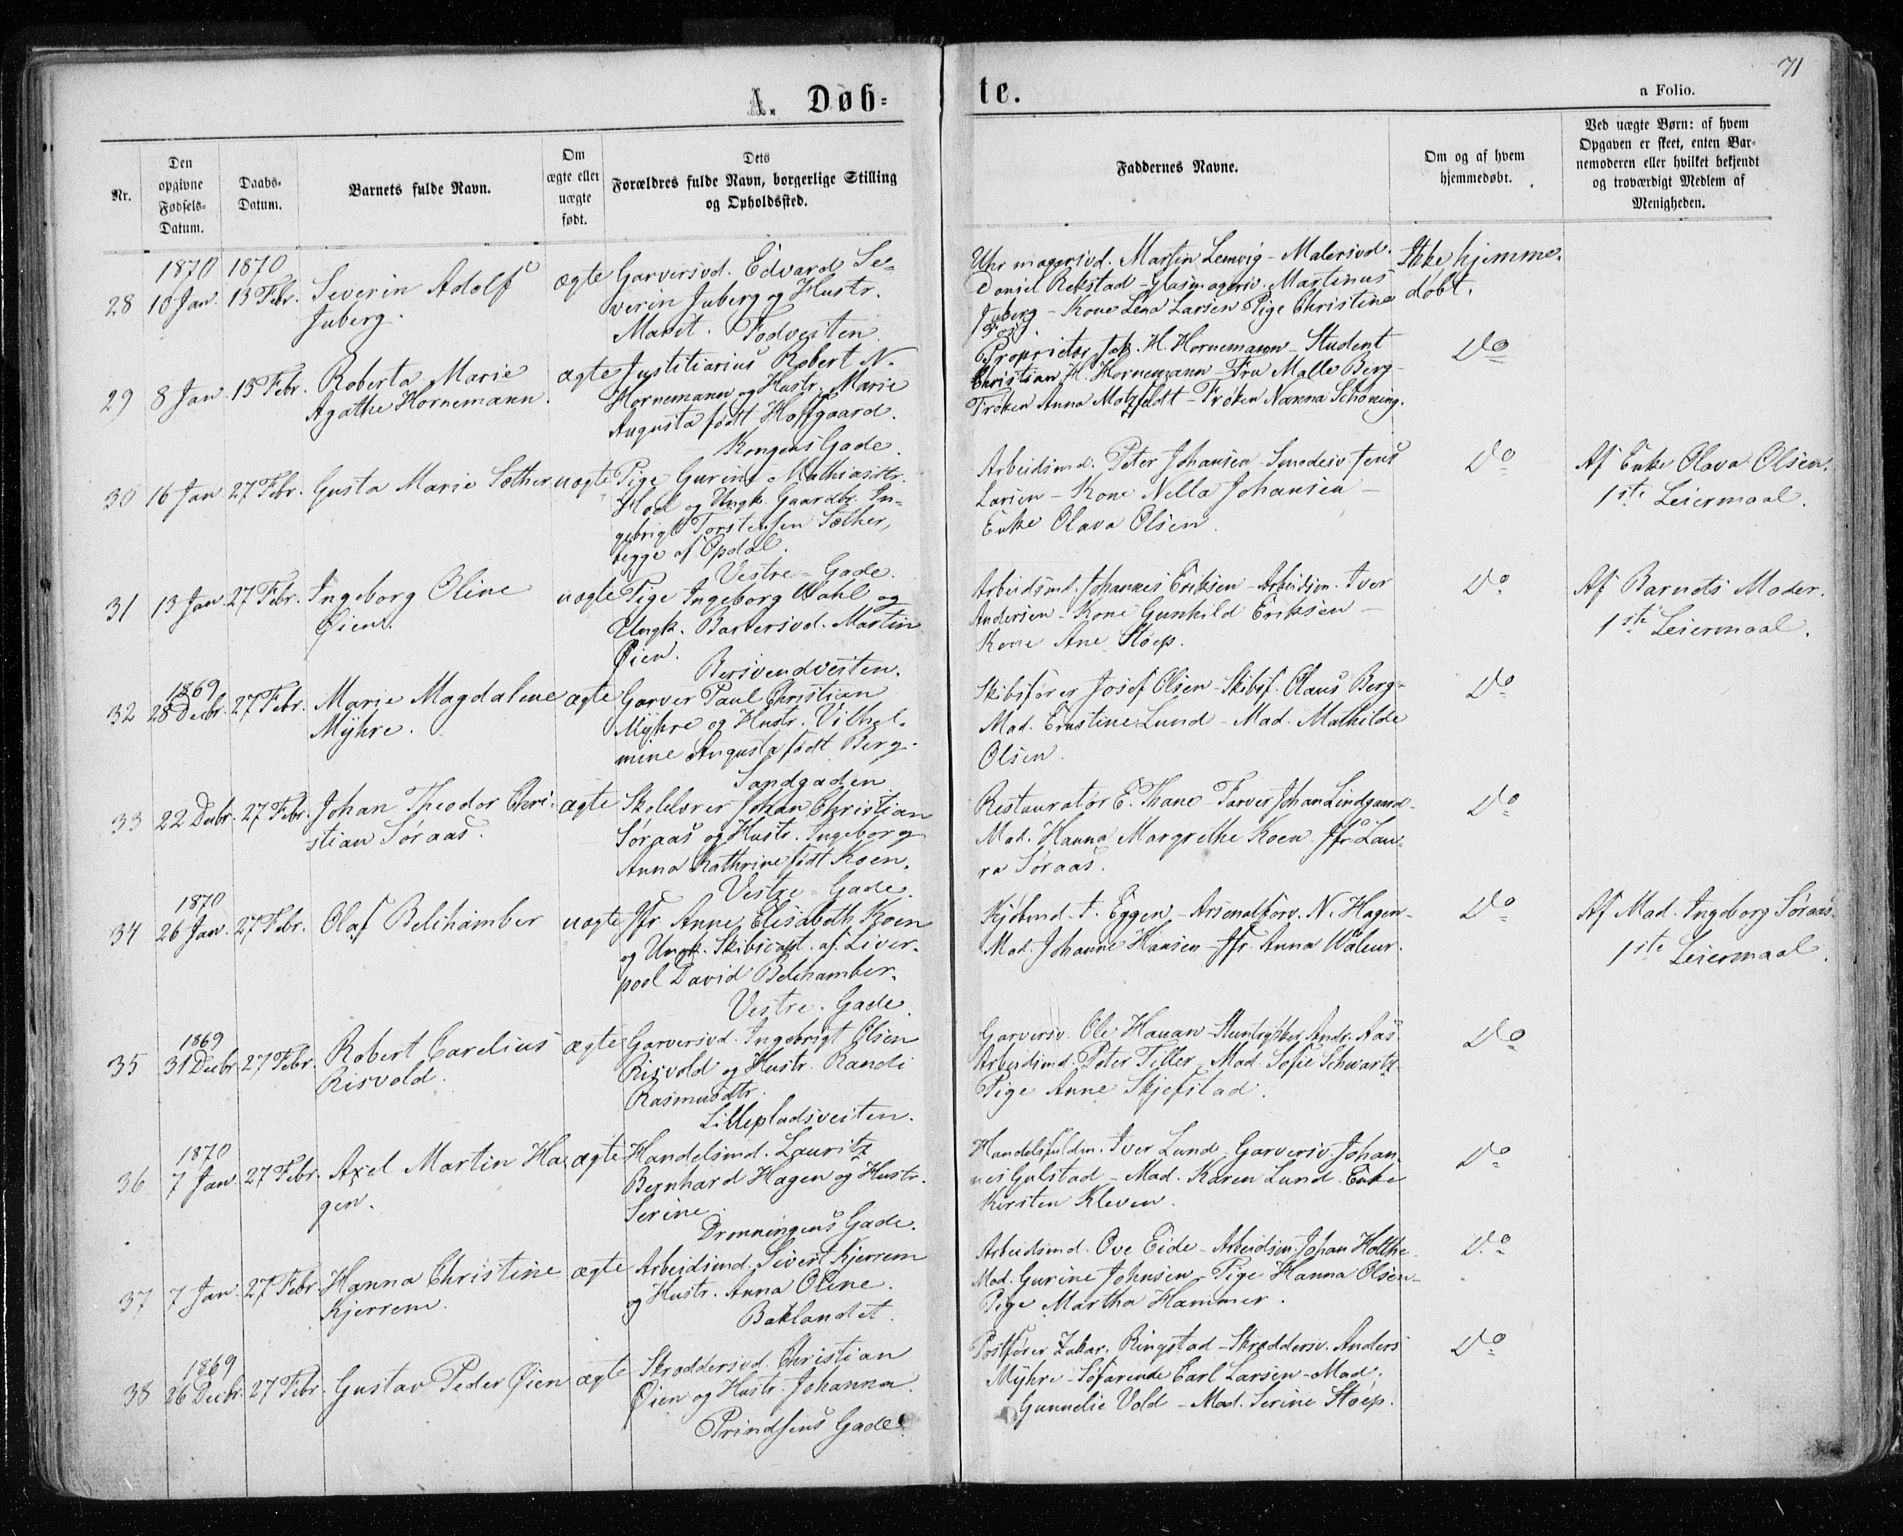 71
A. Døbte.
a Folio.
Nr.
Den opgivne Fødsels-Datum.
Daabs-Datum.
Barnets fulde Navn.
Om ægte eller uægte født.
Dets Forældres fulde Navn, borgerlige Stilling og Opholdssted.
Faddernes Navne.
Om og af hvem hjemmedøbt.
Ved uægte Børn: af hvem Opgaven er skeet, enten Barnemoderen eller hvilket bekjendt og troværdigt Medlem af Menigheden.
1870 1870
28 10 Jan. 13 Febr. Severin Adolf
Juberg.
ægte Garversvd. Edvard Se-
verin Juberg og Hustr.
Marit. Fodveiten.
Uhrmagersvd. Martin Lemvig - Malersvd.
Daniel Rekstad - Glasmagersv. Martinus
Juberg - Kone Lena Larsen Pige Christine
Ikke hjemme-
døbt.
29 8 Jan. 13 Febr. Roberta Marie
Agathe Hornemann.
ægte Justitiarius Robert N.
Hornemann og Hustr. Marie
Augusta født Hoffgaard.
Kongens Gade.
Proprietær Jak. H. Hornemann - Student
Christian H. Hornemann - Fru Malle Berg -
Frøken Anna Motzfeldt - Frøken Nanna Schøning.
Do
30 16 Jan. 27 Febr. Gusta Marie Sæther
uægte Pige Gurine Mathiasdtr.
Hod og Ungk. Gaardbr. In-
gebrigt Torstensen Sæther,
begge af Opdal.
Vestre-Gade.
Arbeidsmd. Peter Johansen - Smedesv. Jens
Larsen - Kone Nella Johansen -
Enke Olava Olsen.
Do
Af Enke Olava Olsen.
1ste Leiermaal.
31 13 Jan. 27 Febr. Ingeborg Oline
Øien.
uægte Pige Ingeborg Wahl og
Ungk. Barbersvd. Martin
Øien.
Bersvendveiten.
Arbeidsmd. Johannes Eriksen - Arbeidsm. Iver
Andersen - Kone Gunhild Eriksen -
Kone Ane Støep.
Do
Af Barnets Moder.
1ste Leiermaal.
1869
32 28 Decbr. 27 Febr. Marie Magdalene
Myhre.
ægte Garver Paul Christian
Myhre og Hustr. Vilhel-
mine Augusta født Berg.
Sandgaden
Skibsfører Josef Olsen - Skibsf. Olaus Berg -
Mad. Ernstine Lund - Mad. Mathilde
Olsen.
Do
33 22 Decbr. 27 Febr. Johan Theodor Chri-
stian Søraas.
ægte Skolelærer Johan Christian
Søraas og Hustr. Ingeborg
Anna Kathrine født Koen.
Vestre-Gade.
Restauratør E. Thane - Farver Johan Lindgaard -
Mad. Hanna Margrethe Koen Jfr. Lau-
ra Søraas.
Do
1870
34 26 Jan. 27 Febr. Olaf Belchamber
uægte Jfr. Anne Elisabeth Koen
og Ungk. Skibscapt. af Liver-
pool David Belchamber.
Vestre-Gade.
Kjøbmd. A. Eggen - Arsenalforv. N. Hagen -
Mad. Johanne Hansen - Jfr. Anna Wäleur.
Do
Af Mad. Ingeborg Søraas.
1ste Leiermaal.
1869
35 31 Decbr. 27 Febr. Robert Carelius
Risvold.
ægte Garversvd. Ingebrigt Olsen
Risvold og Hustr. Randi
Rasmusdtr.
Lillepladsveiten.
Garversv. Ole Hauan - Stentrykker Andr. Aas
Arbeidsmd. Peter Tiller - Mad. Sofie Schwartz -
Pige Anne Skjefstad.
Do
1870
36 7 Jan. 27 Febr. Axel Martin Ha-
gen.
ægte Handelsmd. Lauritz
Bernhard Hagen og Hustr.
Serine.
Dronningens Gade.
Handelsfuldm. Iver Lund, Garversv. Johan-
nes Gulstad - Mad. Karen Lund Enke
Kirsten Kleven.
Do
37 7 Jan. 27 Febr. Hanna Christine
Kjerrem.
ægte Arbeidsmd. Sivert Kjerrem
og Hustr. Anna Oline.
Baklandet.
Arbeidsmd. Ove Eide - Arbeidsm. Johan Holthe -
Mad. Gurine Johnsen - Pige Hanna Olsen -
Pige Martha Hammer.
Do
1869
38 26 Decbr. 27 Febr. Gustav Peder Øien
ægte Skræddersvd. Christian
Øien og Hustr. Johanna.
Prindsens Gade.
Postfører Zakar. Ringstad - Skræddersv. Anders
Myhre - Søfarende Carl Larsen - Mad.
Gunnelie Vold - Mad. Serine Støep.
Do